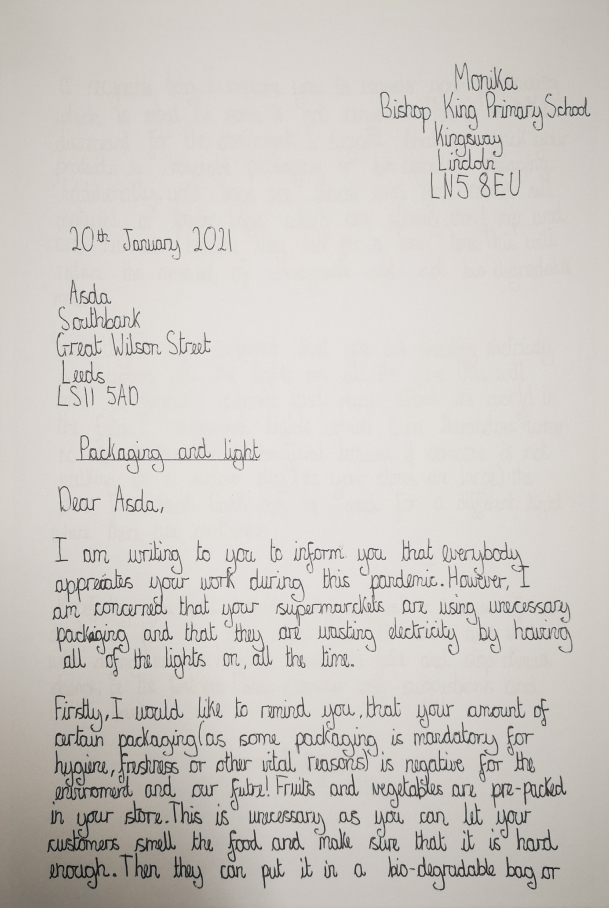 Monika
Bishop King Primary School
Kingsway
Lincoln
LN5 8EU
20th January 2021
Asda
Southbank
Great Wilson Street
Leeds
LS11 5AD
Packaging and light
Dear Asda,
I am writing to you to inform you that everybody
appreciates your work during this pandemic. However, I
am concerned that your supermarckets are using unecessary
packaging and that they are wasting electricity by having
all of the lights on, all the time.
Firstly, I would like to remind you, that your amount of
certain packaging (as some packaging is mandatory for
hygiene, freshness or other vital reasons) is negative for the
enviroment and our future! Fruits and vegetables are pre-packed
in your store. This is unecessary as you can let your
customers smell the food and make sure that it is hard
enough. Then they can put it in a bio-degradable bag or